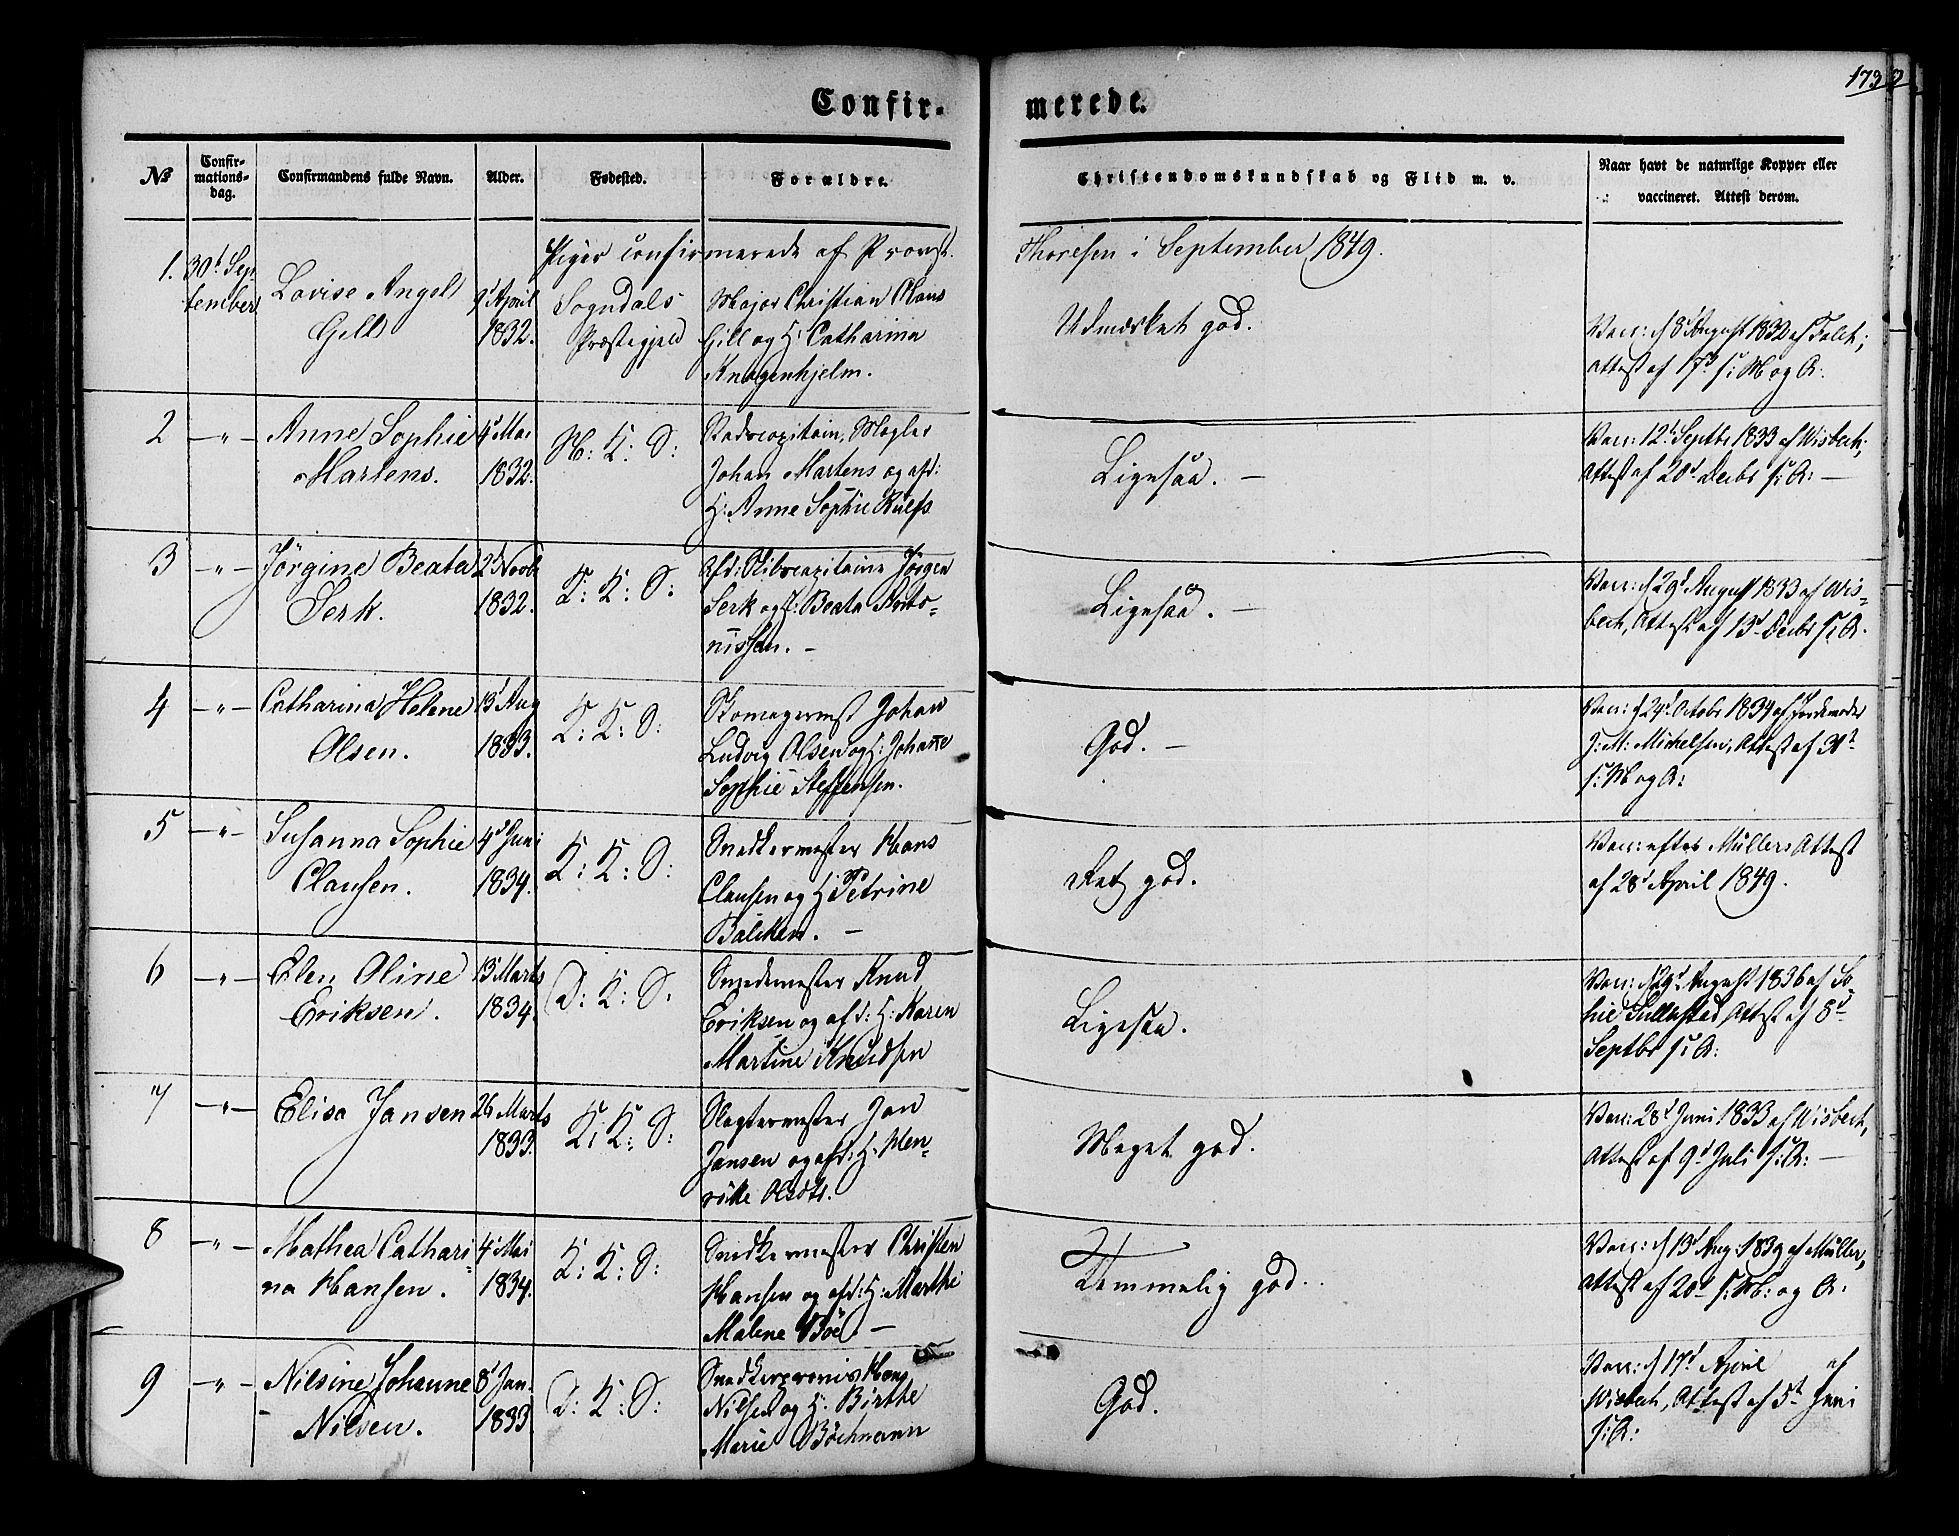 173
Confir-
merede.
No
Confir-
mations-
dag.
Confirmandens fulde Navn.
Alder.
Fødested.
Forældre.
Christendomskundskab og Flid m. v.
Naar havt de naturlige Kopper eller
vaccineret. Attest derom.
Piger confirmerede af Provst
Thoresen i September 1849.
1.
30t Sep-
tember
Lovise Angell
Gill
9d April
1832.
Sogndals
Præstegjeld
Major Christian Hans
Gill og H. Catharina
Knagenhjelm.
Udmærket god.
Vacc: d 8d August 1832 af Falch;
Attest af 17d s: M og A.
2
-"-
Anne Sophie
Martens.
4d Mai
1832.
N: K: S:
Stadscapitain, Mægler
Johan Martens og afd:
H: Anne Sophie Rulfs
Ligesaa. -
Vacc: 12d Septbr 1833 af Wisbech;
Attest af 20d Decbr s: A: -
3
-"-
Jørgine Beata
Serk.
2d Novbr
1832.
K: K: S:
Afd: Skibscapitaine Jørgen
Serk og H: Beata Anto-
nissen. -
Ligesaa. -
Vacc: d 29d August 1833 af Wis-
bech, Attest af 13d Decbr s: A.
4
-"-
Catharina Helene
Olsen.
13d Aug
1833.
K: K: S:
Skomagermst Johan
Ludvig Olsen og H: Johanne
Sophie Steffensen.
God. -
Vacc: d 24d Octobr 1834 af Jordemoder
J: M: Michelsen, Attest af 31t
s: M og A:
5
-"-
Susanna Sophie
Clausen.
4d Juni
1834.
K: K: S:
Snedkermester Hans
Clausen og H Petrine
Balchen. -
Ret god.
Vacc: efter Müllers Attest
af 28d April 1849.
6
-"-
Elen Oline
Eriksen.
13d Marts
1834.
D: K: S:
Smedemester Knud
Eriksen og afd: H: Karen
Martine Knudsen
Ligesaa.
Vacc: d 29d August 1836 af So-
hie Attest af 8d
Septbr s: A:
7
-"-
Elisa Jansen
26 Marts
1833.
K: K: S:
Slagtermester Jan
Jansen og afd: H: Hen-
rikke Olsdtr.
Meget god.
Vacc: 28d Juni 1833 af Wisbech,
Attest af 9d Juli s: A: -
8
-"-
Mathea Cathari-
na Hansen.
4d Mai
1834.
K: K: S:
Snedkermester Christen
Hansen og afd: H: Marthe
Malene Böe. -
Temmelig god.
Vacc: d 13d Aug: 1839 af Müller,
Attest af 20d s: M: og A:
9
-"-
Nilsine Johanne
Nilsen.
8d Jan.
1833
D: K: S:
Hans
Nilsen og H. Birthe
Marie Böchmann
God.
Vacc: d 17d April af
Wisbech, Attest af 5t Juni
s: A: